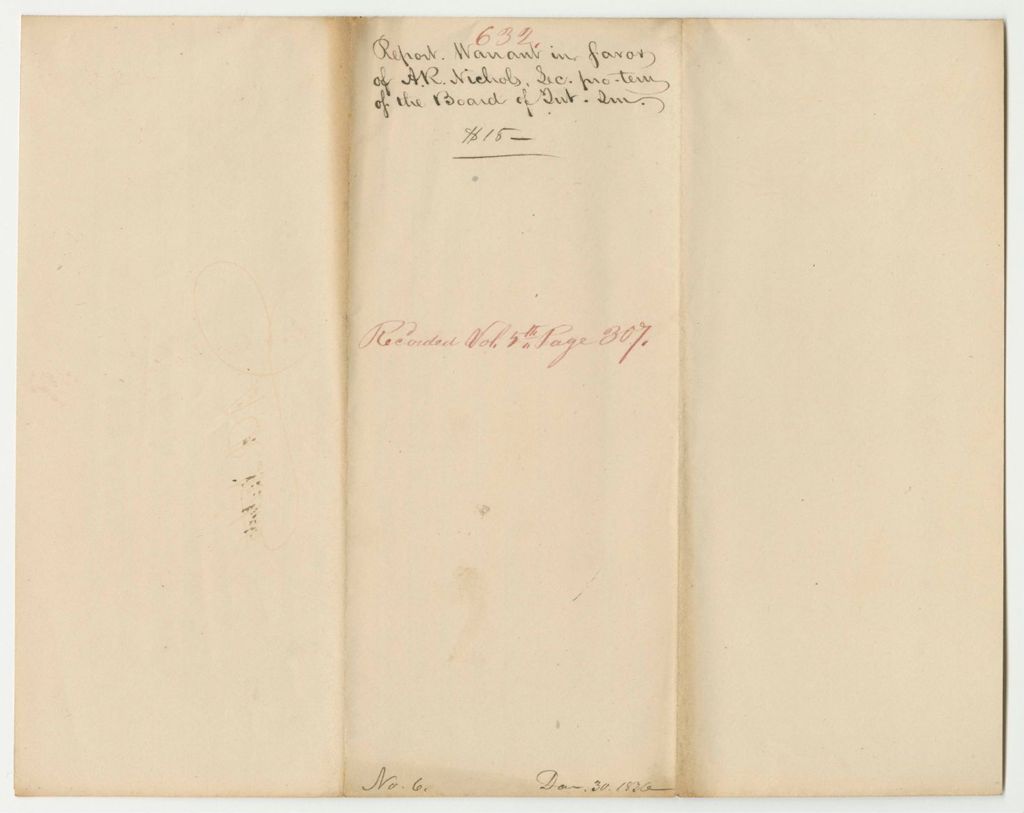 632.
Report. Warrant in favor
of A.R. Nichols, Sec. pro-tem
of the Board of Int. Im.
$15 —
Recorded Vol. 5th Page 307.
No. 6.
30. 1836